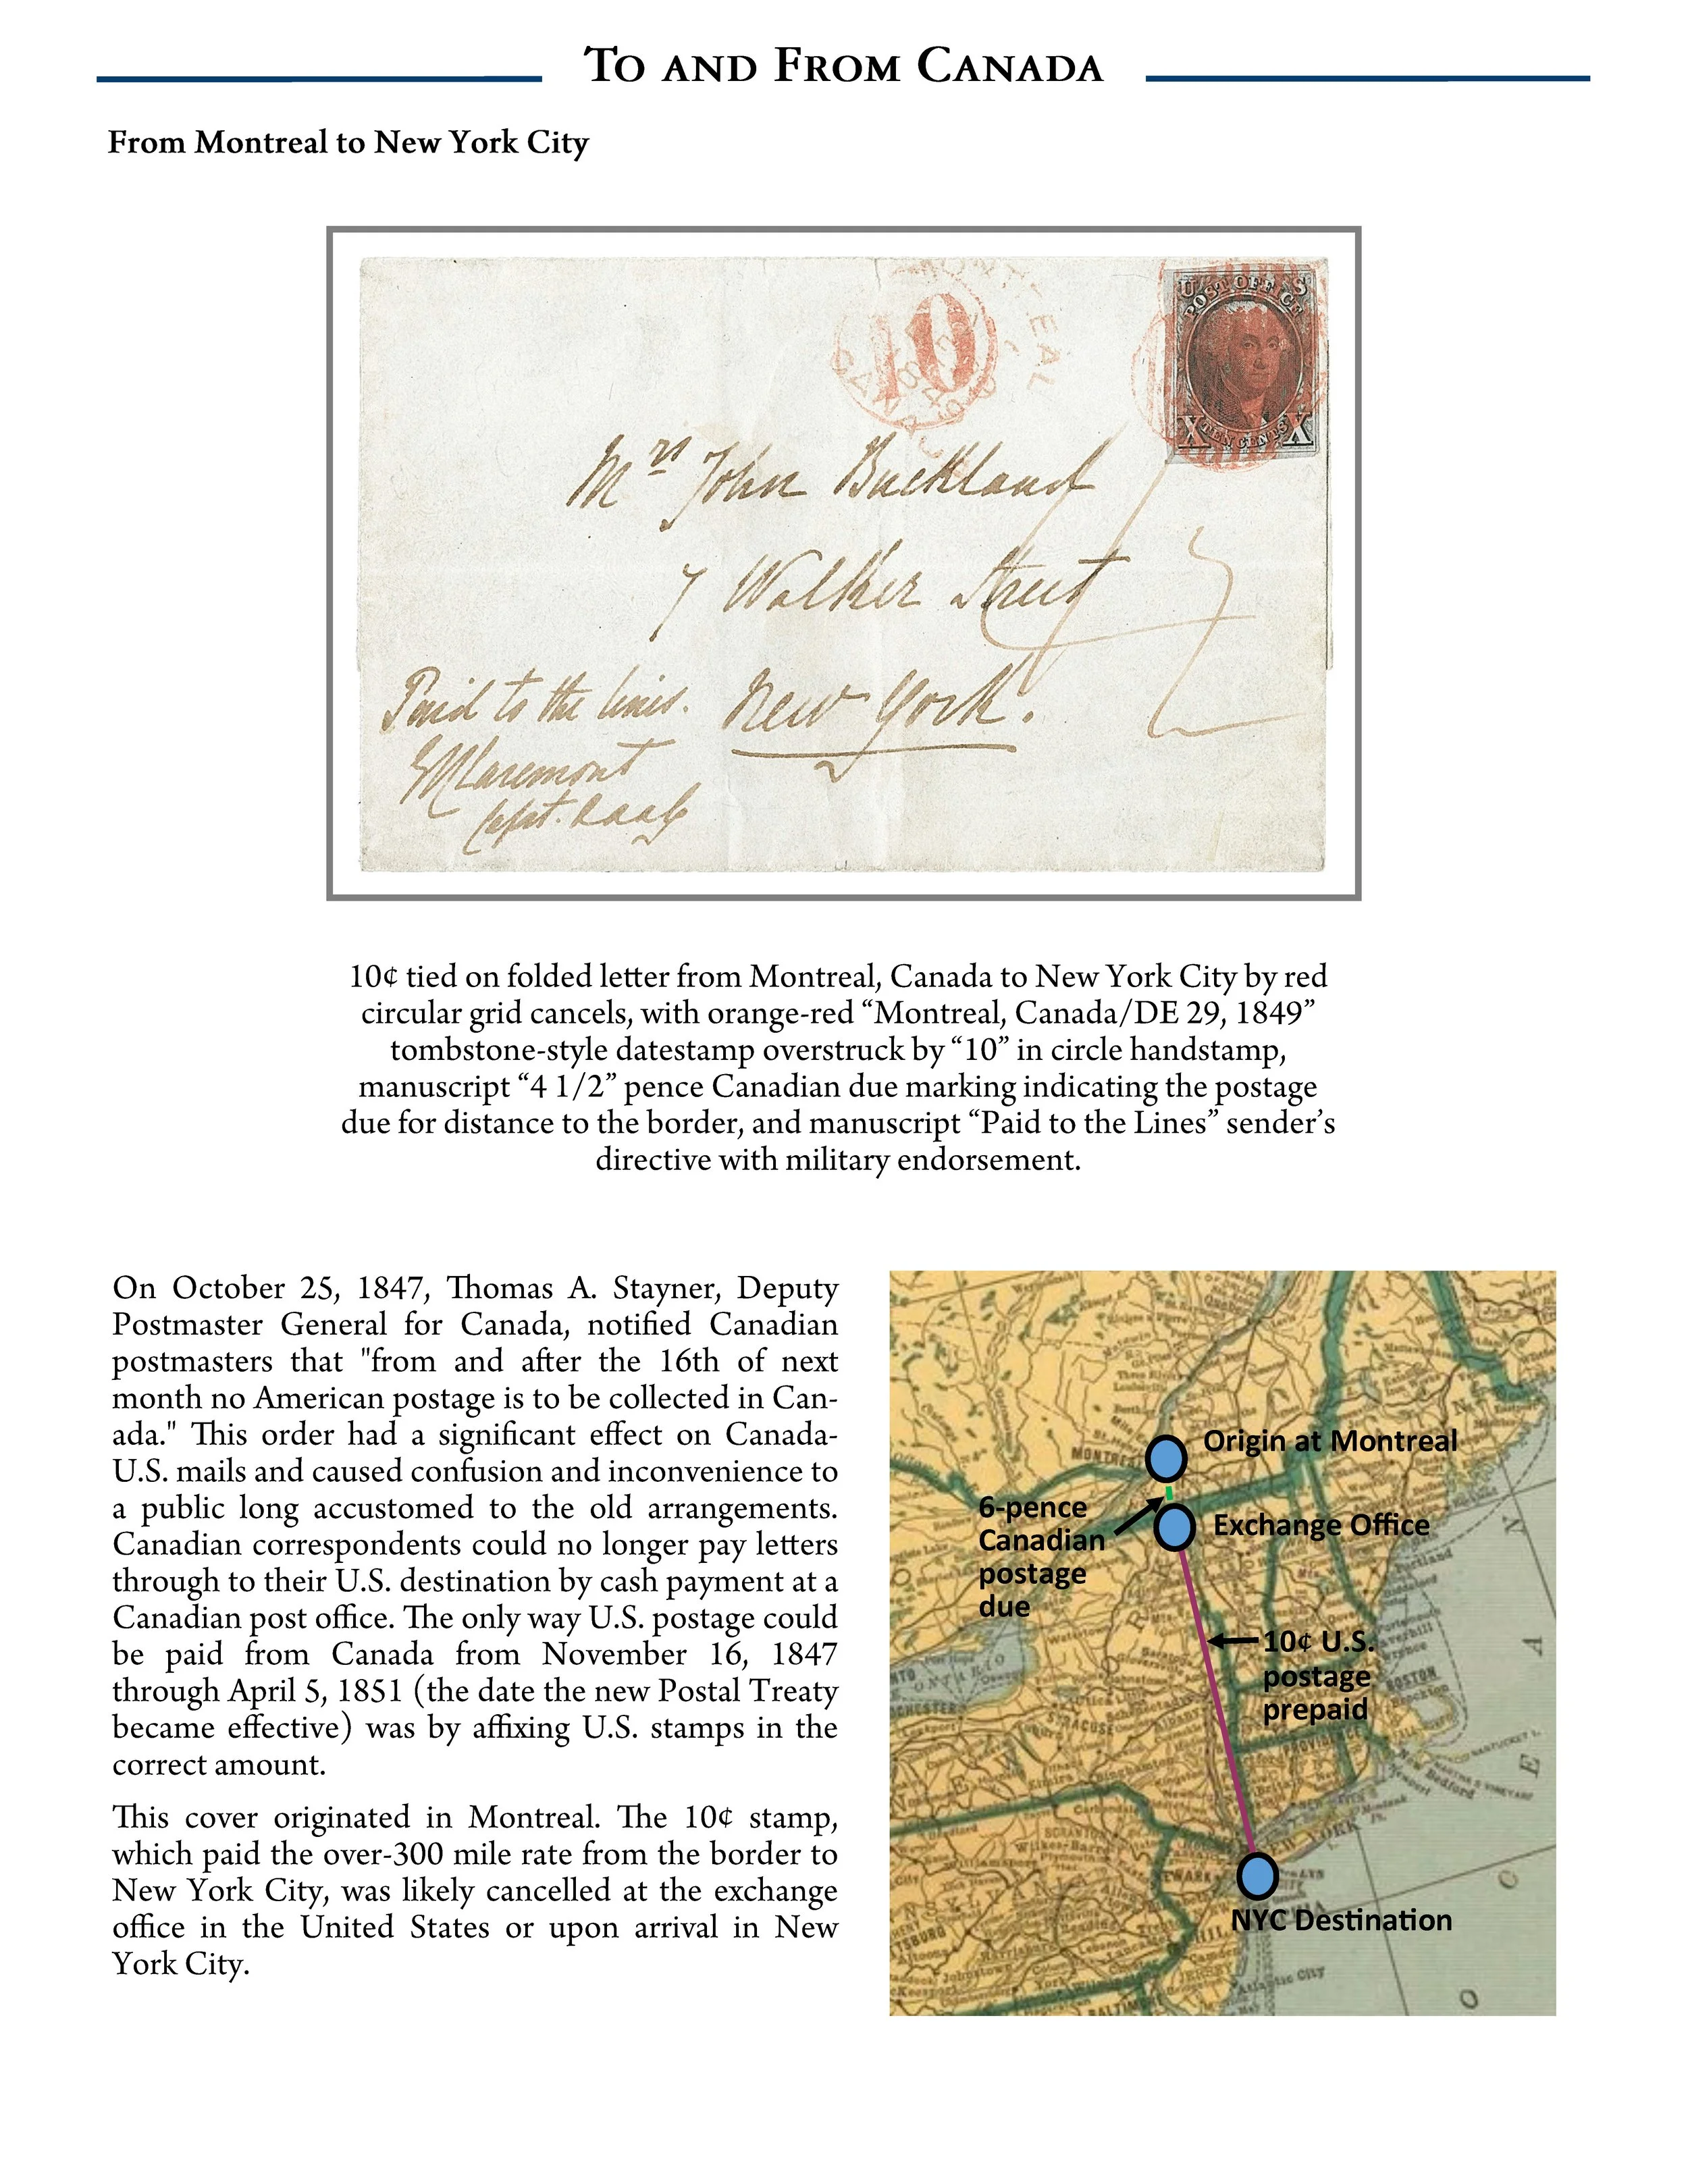 To and From Canada
From Montreal to New York City
10
U S
POST OFFICE
X TEN CENTS X
Mrs John Buckland
7 Walker Street
New York.
Paid to the lines.
Capt.
10¢ tied on folded letter from Montreal, Canada to New York City by red
circular grid cancels, with orange-red “Montreal, Canada/DE 29, 1849”
tombstone-style datestamp overstruck by “10” in circle handstamp,
manuscript “4 1/2” pence Canadian due marking indicating the postage
due for distance to the border, and manuscript “Paid to the Lines” sender’s
directive with military endorsement.
On October 25, 1847, Thomas A. Stayner, Deputy
Postmaster General for Canada, notified Canadian
postmasters that "from and after the 16th of next
month no American postage is to be collected in Can-
ada." This order had a significant effect on Canada-
U.S. mails and caused confusion and inconvenience to
a public long accustomed to the old arrangements.
Canadian correspondents could no longer pay letters
through to their U.S. destination by cash payment at a
Canadian post office. The only way U.S. postage could
be paid from Canada from November 16, 1847
through April 5, 1851 (the date the new Postal Treaty
became effective) was by affixing U.S. stamps in the
correct amount.
This cover originated in Montreal. The 10¢ stamp,
which paid the over-300 mile rate from the border to
New York City, was likely cancelled at the exchange
office in the United States or upon arrival in New
York City.
Origin at Montreal
6-pence
Canadian
postage
due
Exchange Office
10¢ U.S.
postage
prepaid
NYC Destination
ONTARIO
SYRACUSE
BOSTON
PROVIDENCE
New Bedford
Newport
NEW YORK
Portland
Atlantic City
JERSEY
O C E A N